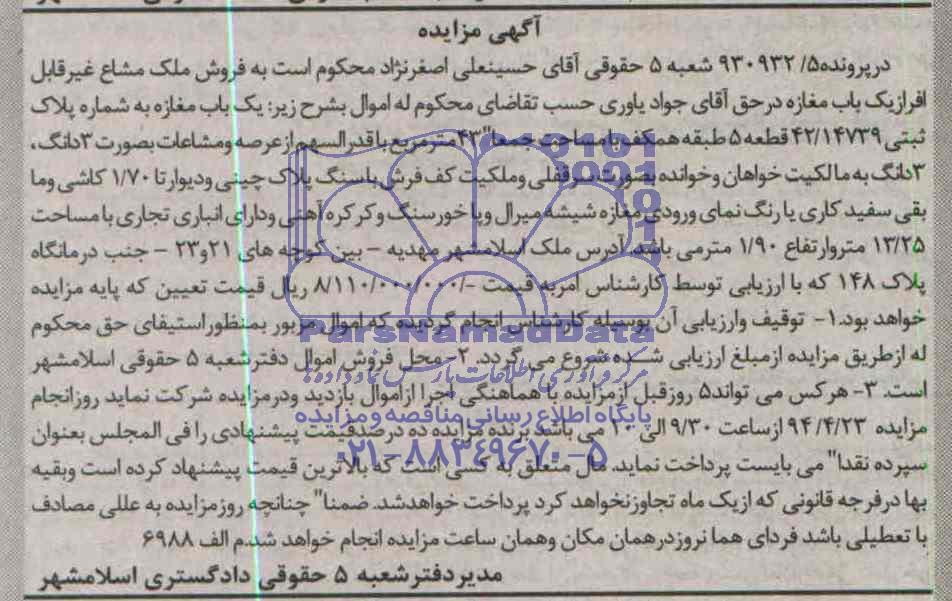 آگهی مزایده
درپرونده۵/ ۹۳۰۹۳۲ شعبه ۵ حقوقی آقای حسینعلی اصغرنژاد محکوم است به فروش ملک مشاع غیرقابل
افرازیک باب مغازه درحق آقای جواد یاوری حسب تقاضای محکوم له اموال بشرح زیر: یک باب مغازه به شماره پلاک
ثبتی ۴۲/۱۴۷۳۹ قطعه ۵ طبقه همکف بامساحت جمعا" ۴۳ مترمربع باقدرالسهم ازعرصه ومشاعات بصورت ۳دانگ،
۳دانگ به مالکیت خواهان وخوانده بصورت سرقفلی وملکیت کف فرش باسنگ پلاک چینی ودیوارتا ۱/۷۰ کاشی وما
بقی سفید کاری یا رنگ نمای ورودی مغازه شیشه میرال وپا خورسنگ وکرکره آهنی ودارای انباری تجاری با مساحت
۱۳/۲۵ متروارتفاع ۱/۹۰ مترمی باشد. آدرس ملک اسلامشهر مهدیه – بین کوچه های ۲۱و۲۳ – جنب درمانگاه
پلاک ۱۴۸ که با ارزیابی توسط کارشناس امربه قیمت -/۸/۱۱۰/۰۰۰/۰۰۰ ریال قیمت تعیین که پایه مزایده
خواهد بود.۱- توقیف وارزیابی آن بوسیله کارشناس انجام گردیده که اموال مزبور بمنظوراستیفای حق محکوم
له ازطریق مزایده ازمبلغ ارزیابی شده شروع می گردد. ۲-محل فروش اموال دفترشعبه ۵ حقوقی اسلامشهر
است. ۳- هرکس می تواند۵ روزقبل ازمزایده با هماهنگی اجرا ازاموال بازدید ودرمزایده شرکت نماید روزانجام
مزایده ۹۴/۴/۲۳ ازساعت ۹/۳۰ الی ۱۰ می باشد برنده مزایده ده درصدقیمت پیشنهادی را فی المجلس بعنوان
سپرده نقدا" می بایست پرداخت نماید. مال متعلق به کسی است که بالاترین قیمت پیشنهاد کرده است وبقیه
بها درفرجه قانونی که ازیک ماه تجاوزنخواهد کرد پرداخت خواهدشد. ضمنا" چنانچه روزمزایده به عللی مصادف
با تعطیلی باشد فردای هما نروزدرهمان مکان وهمان ساعت مزایده انجام خواهد شد.م الف ۶۹۸۸
مدیردفترشعبه ۵ حقوقی دادگستری اسلامشهر
ParsNamadData
مرکز فرآوری اطلاعات پارس نماد داده ها
پایگاه اطلاع رسانی مناقصه و مزایده
۰۲۱-۸۸۳۴۹۶۷۰-۵